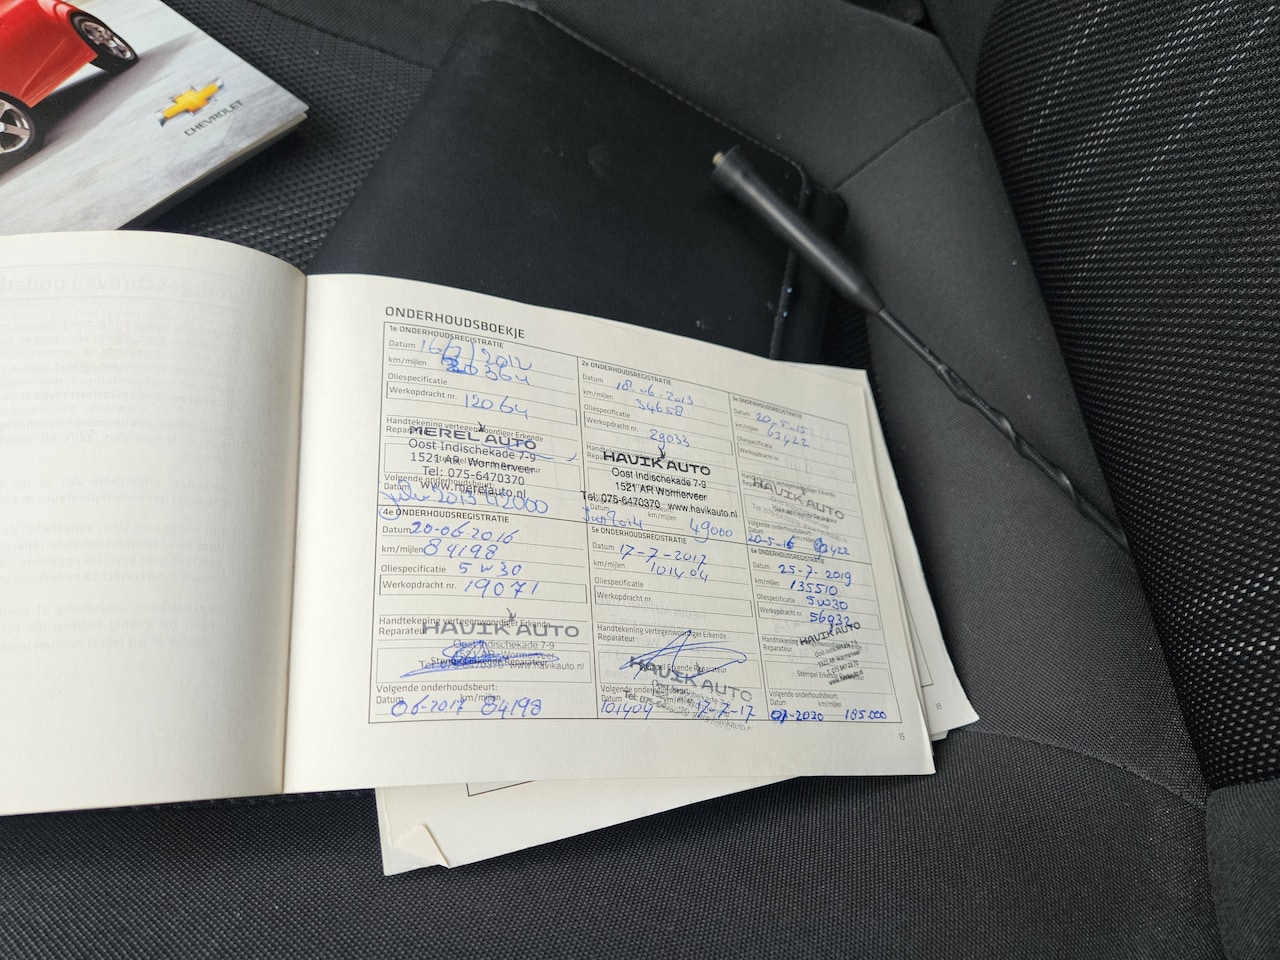 CHEVROLET
ONDERHOUDSBOEKJE
1e ONDERHOUDSREGISTRATIE
Datum 16/7/2012
km/mijlen 20364
Oliespecificatie
Werkopdracht nr. 12064
Handtekening vertegenwoordiger Erkende
Reparateur
MEREL AUTO
Oost Indischekade 7-9
1521 AR Wormerveer
Tel: 075-6470370
www.merelauto.nl
Volgende onderhoudsbeurt:
Datum
2013 42000
2e ONDERHOUDSREGISTRATIE
Datum 18-06-2013
km/mijlen 34658
Oliespecificatie
Werkopdracht nr.
29033
HAVIK AUTO
Oost Indischekade 7-9
1521 AR Wormerveer
Tel. 075-6470370 www.havikauto.nl
Datum km/mijlen
Jun 2014 49000
3e ONDERHOUDSREGISTRATIE
Datum 20-5-15
km/mijlen 63422
Oliespecificatie
Werkopdracht nr.
HAVIK AUTO
Volgende onderhoudsbeurt:
20-5-16
4e ONDERHOUDSREGISTRATIE
Datum 20-06-2016
km/mijlen 84198
Oliespecificatie 5w30
Werkopdracht nr. 19071
Handtekening vertegenwoordiger Erkende
Reparateur
HAVIK AUTO
Oost Indischekade 7-9
1521 AR Wormerveer
Stempel Erkende Reparateur
Tel. 075-6470370 www.havikauto.nl
Volgende onderhoudsbeurt:
Datum km/mijlen
06-2017 84198
5e ONDERHOUDSREGISTRATIE
Datum 17-7-2017
km/mijlen 101404
Oliespecificatie
Werkopdracht nr.
Handtekening vertegenwoordiger Erkende
Reparateur
Stempel Erkende Reparateur
HAVIK AUTO
Volgende onderhoudsbeurt:
Datum
101404 17-7-17
6e ONDERHOUDSREGISTRATIE
Datum 25-7-2019
km/mijlen 135510
Oliespecificatie 5w30
Werkopdracht nr. 56932
Handtekening
Reparateur
HAVIK AUTO
Stempel Erkende
Volgende onderhoudsbeurt:
Datum km/mijlen
07-2020 185000
15